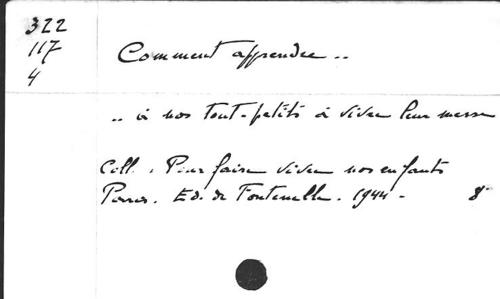 322
117
4
Comment apprendre ..
.. à nos tout-petits à vivre leur messe
Coll. : Pour faire vivre nos enfants
Paris. Ed. de Fontenelle. 1944 - 8°